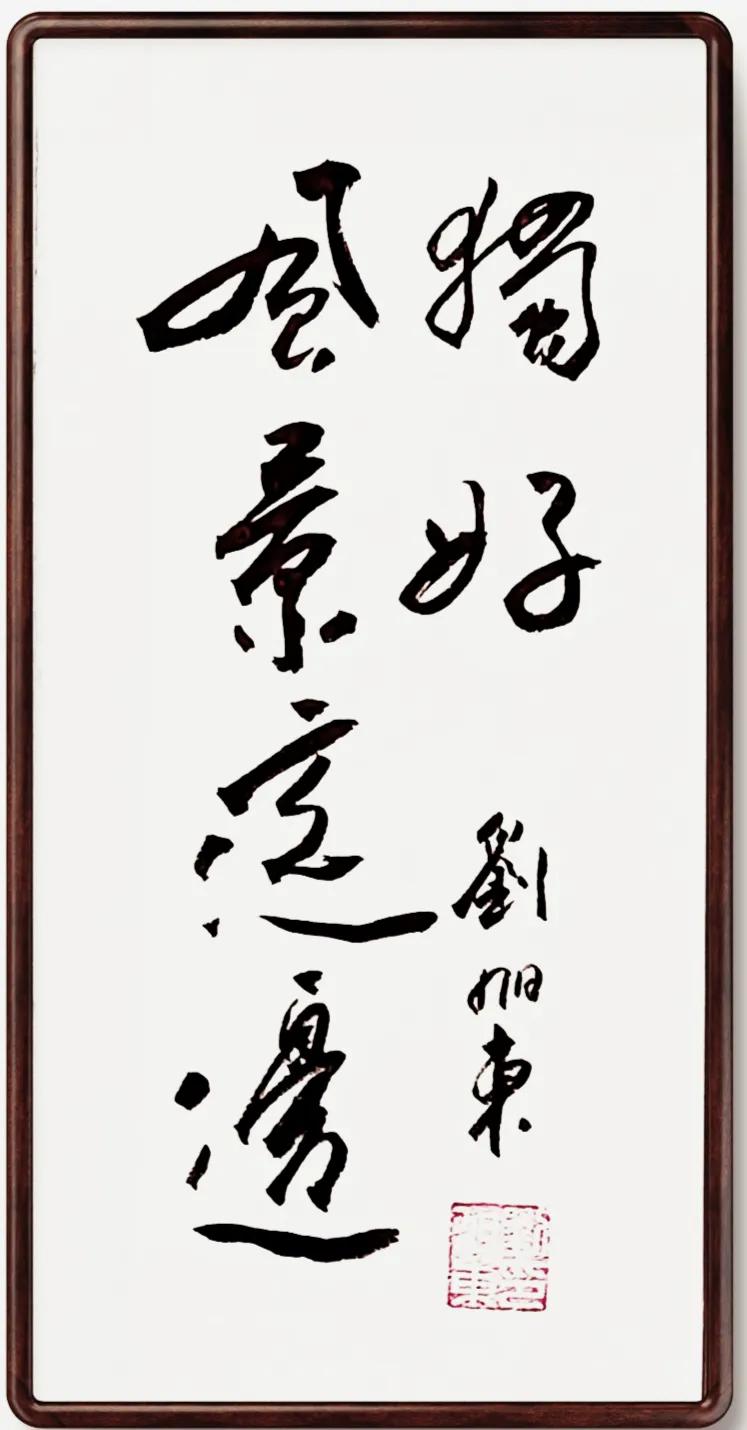 風景這邊
獨好
劉 東